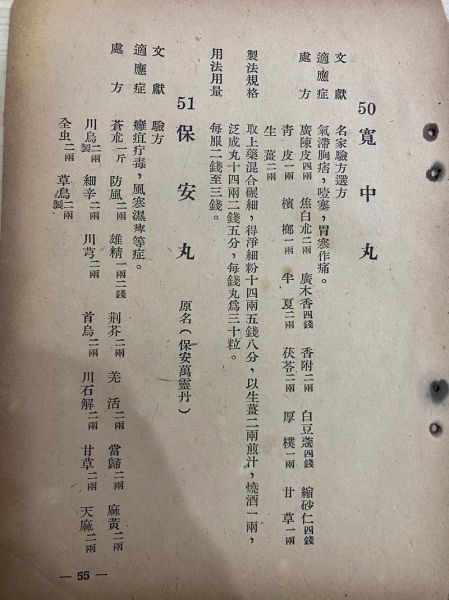 50 寬中丸
文獻 名家驗方選方
適應症 氣滯胸痞，噎塞，胃寒作痛。
處方 廣陳皮四兩 焦白朮二兩 廣木香四錢 香附二兩 白豆蔻四錢 縮砂仁四錢
青皮一兩 檳榔一兩 半夏二兩 茯苓二兩 厚樸一兩 甘草一兩
生薑二兩
製法規格 取上藥混合碾細，得淨細粉十四兩五錢八分，以生薑二兩煎汁，燒酒一兩，
泛成丸十四兩二錢五分，每錢丸爲三十粒。
用法用量 每服二錢至三錢。
51 保安丸 原名（保安萬靈丹）
文獻 驗方
適應症 癰疽疔毒，風寒濕痺等症。
處方 蒼朮一斤 防風二兩 雄精一兩二錢 荆芥二兩 羌活二兩 當歸二兩 麻黃二兩
川烏製二兩 細辛二兩 川芎二兩 首烏二兩 川石解二兩 甘草二兩 天麻二兩
全虫二兩 草烏製二兩
— 55 —